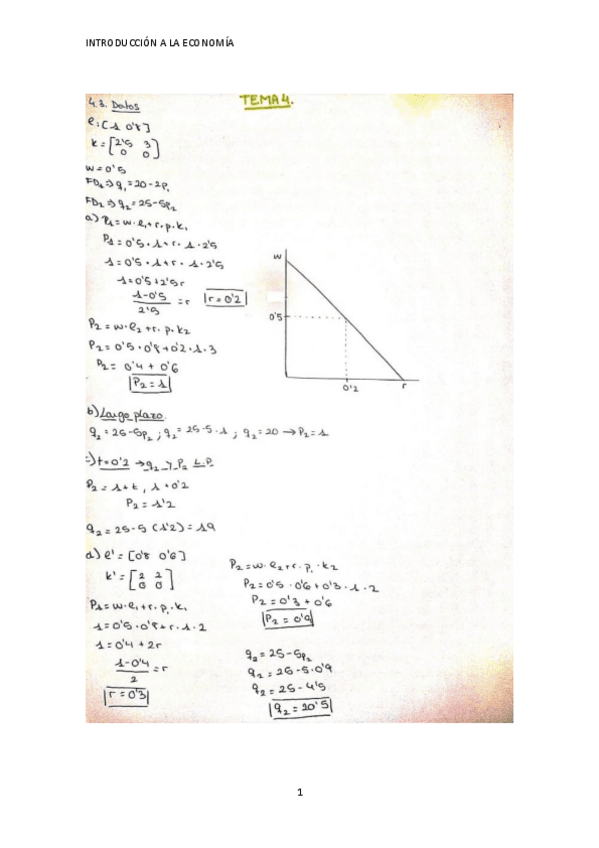 INTRODUCCIÓN A LA ECONOMÍA
TEMA 4.
4.3. Datos
l = [1 0'8]
k = [2'5 3
0 0]
w = 0'5
FD1 ⇒ q1 = 20 - 2p1
FD2 ⇒ q2 = 25 - 5p2
a) P1 = w · l1 + r · p · k1
P1 = 0'5 · 1 + r · 1 · 2'5
1 = 0'5 · 1 + r · 1 · 2'5
1 = 0'5 + 2'5 r
1 - 0'5 / 2'5 = r r = 0'2
P2 = w · l2 + r · p · k2
P2 = 0'5 · 0'8 + 0'2 · 1 · 3
P2 = 0'4 + 0'6
P2 = 1
w
0'5
0'2
r
b) Largo plazo.
q2 = 25 - 5p2 ; q2 = 25 - 5 · 1 ; q2 = 20 → P2 = 1
c) t = 0'2 → q2 y P2 L.P.
P2 = 1 + t , 1 + 0'2
P2 = 1'2
q2 = 25 - 5 (1'2) = 19
d) l' = [0'8 0'6]
k' = [2 2
0 0]
P1 = w · l1 + r · p · k1
1 = 0'5 · 0'8 + r · 1 · 2
1 = 0'4 + 2r
1 - 0'4 / 2 = r
r = 0'3
P2 = w · l2 + r · p · k2
P2 = 0'5 · 0'6 + 0'3 · 1 · 2
P2 = 0'3 + 0'6
P2 = 0'9
q2 = 25 - 5p2
q2 = 25 - 5 · 0'9
q2 = 25 - 4'5
q2 = 20'5
1